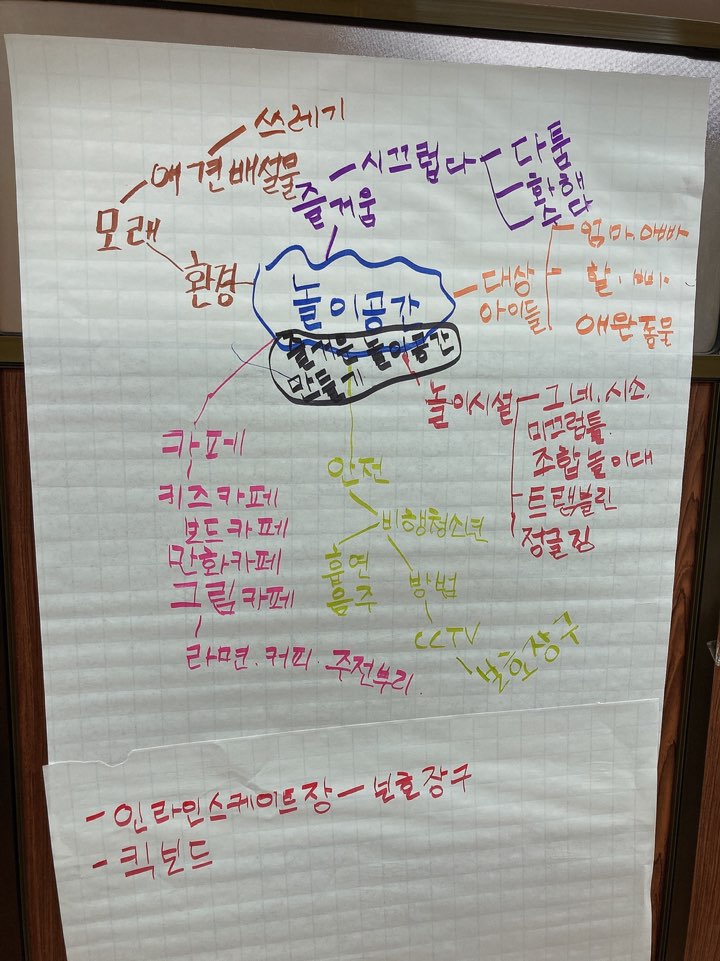 쓰레기
애견배설물
모래
환경
즐거움
시끄럽다
다툼
놀이공간
즐거운 놀이공간
만들기
대상
아이들
엄마.아빠
할.빠.
애완동물
놀이시설
그네.시소.
미끄럼틀.
조합놀이대
트램블린
정글짐
카페
키즈카페
보드카페
만화카페
그림카페
라면.커피.주전부리.
안전
비행청소년
흡연
음주
방범
CCTV
보호장구
- 인라인스케이트장 - 보호장구
- 킥보드